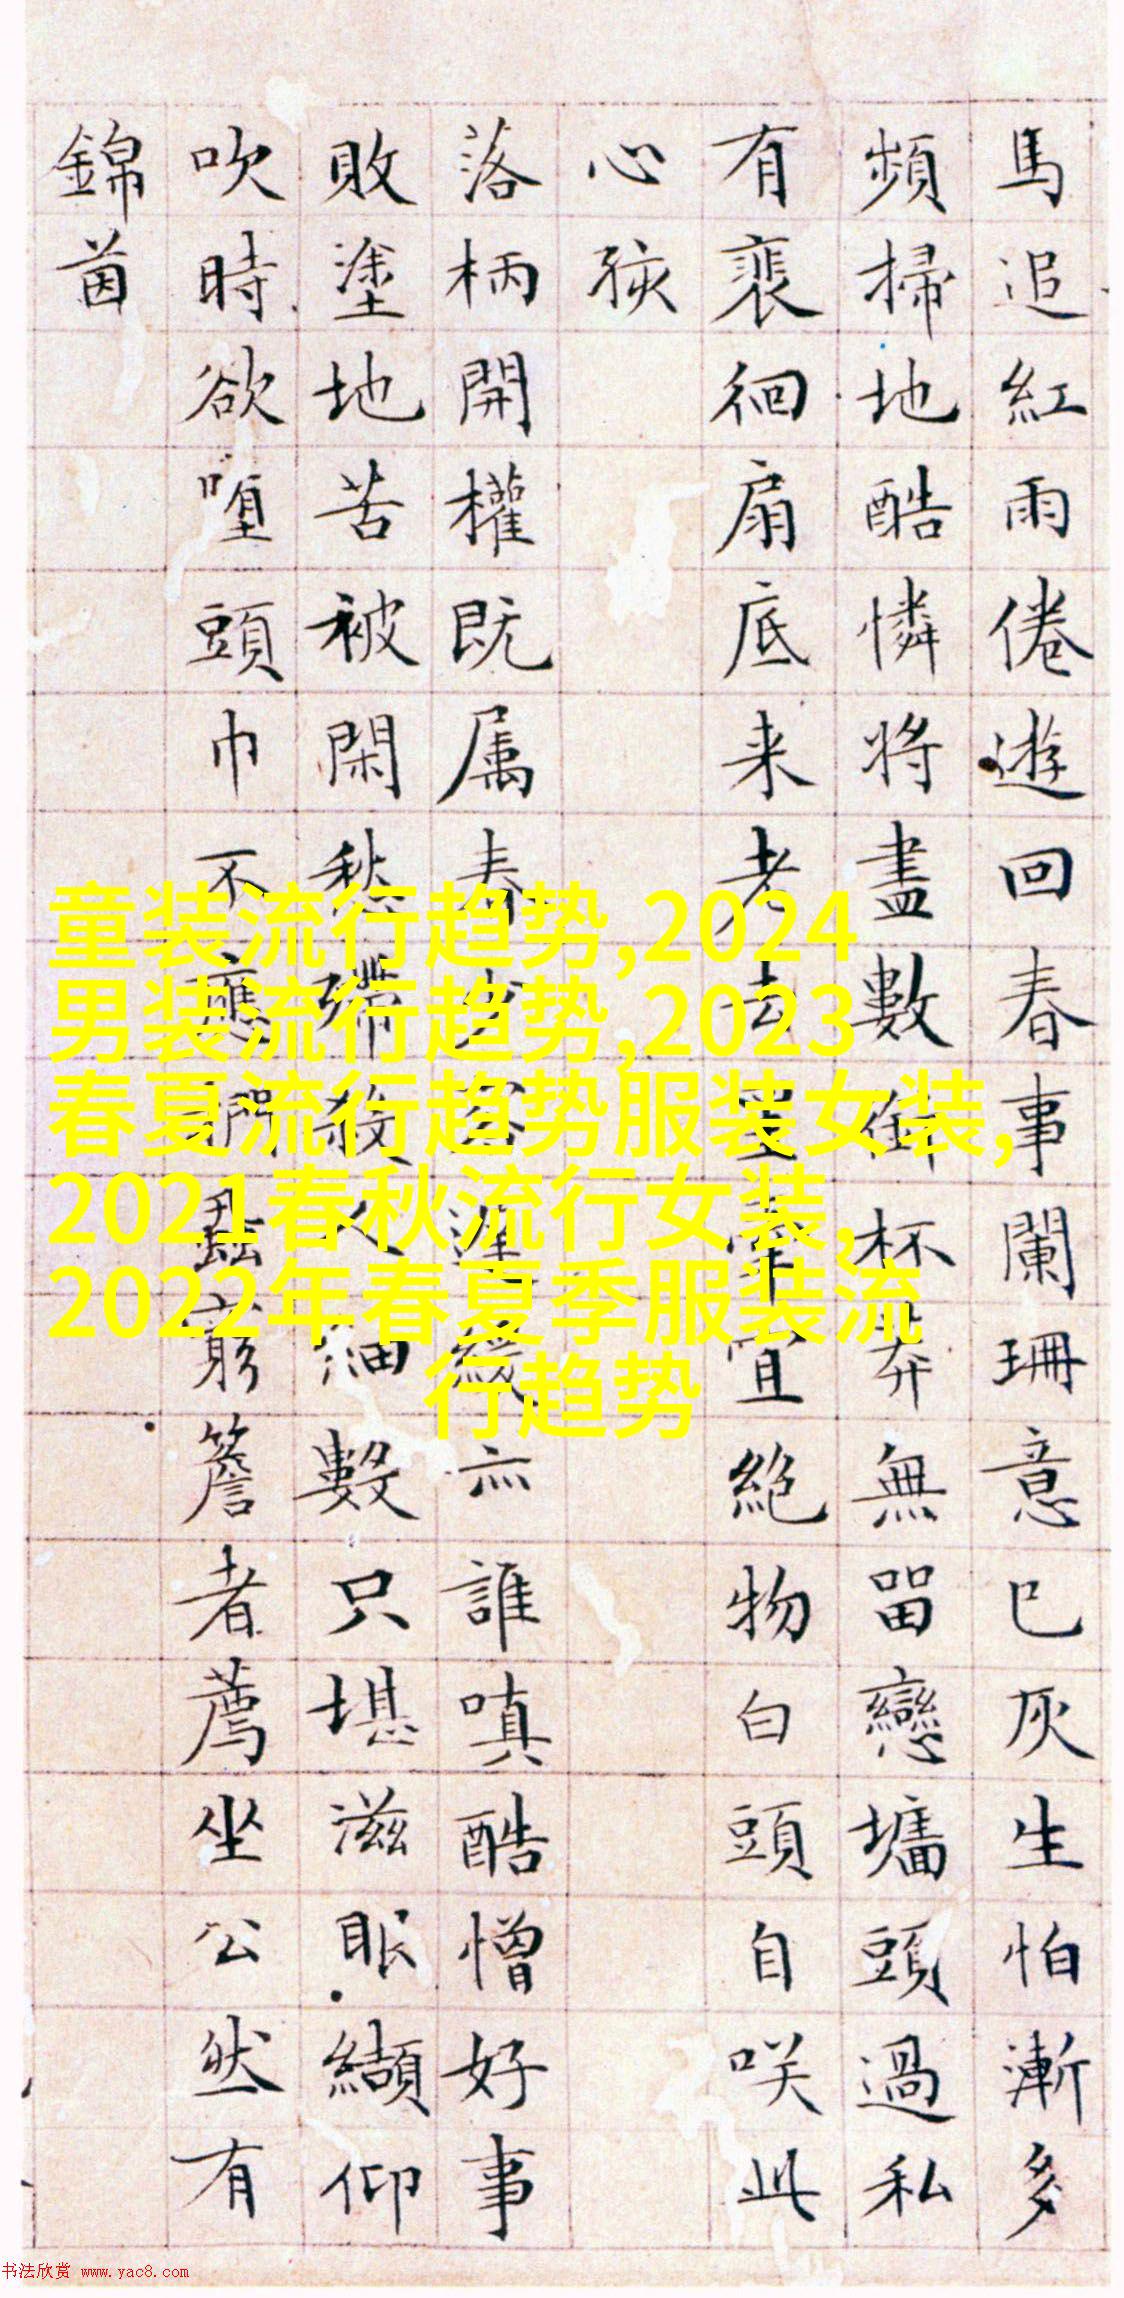 馬追紅雨倦遊回春事闌珊意已灰生怕漸多
頻掃地酷憐將盡數銜杯奔無留戀墻頭過私
有裴徊扇底来老去置辜宜絶物白頭自咲此
心孩
落柄開權既属春 客 涯緣亦誰嗔酷憎好事
敗塗地苦被閑愁殢殺人細數只堪滋眼纈仰
吹時欲堕頭巾不應 蝨窮簷者薦坐公然有
錦茵
童装流行趋势,2024
男装流行趋势,2023
春夏流行趋势服装女装,
2021春秋流行女装,
2022年春夏季服装流
行趋势
书法欣赏 www.yac8.com